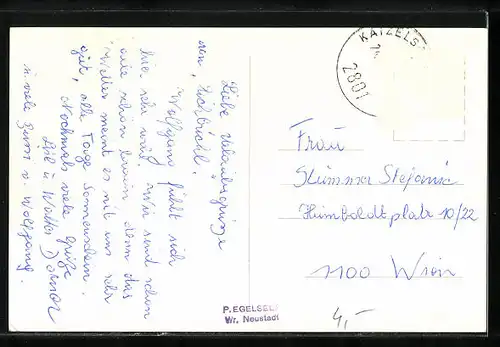 Liebe Urlaubsgrüße
Wolfgang fühlt sich
hier sehr wohl. Wir sind schon
alle schön braun denn das
Wetter meint es mit uns sehr
gut, alle Tage Sonnenschein.
Nochmals viele Grüße
u. Walter
u. viele Bussi v. Wolfgang.
KATZELS
2801
Frau
Stefanie
Humboldtplatz 10/22
1100 Wien
4,-
P. EGELSEE
Wr. Neustadt